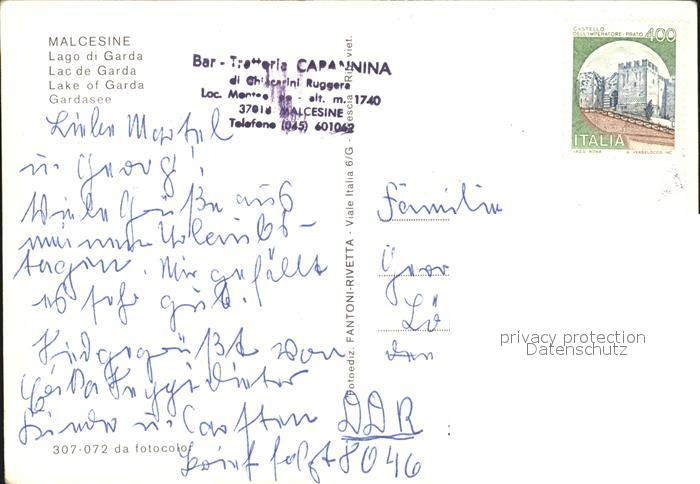 MALCESINE
Lago di Garda
Lac de Garda
Lake of Garda
Gardasee
Bar - Trattoria CAPANNINA
di Chincarini Ruggero
Loc. - alt. m. 1740
37018 MALCESINE
Telefono (045) 601042
CASTELLO
DELL'IMPERATORE - PRATO 400
ITALIA
Liebe
u. Georg!
Viele Grüße aus
meinen Urlaubs-
tagen. Mir gefällt
es sehr gut.
von
u. Carsten
Brief folgt
Fotoediz. FANTONI-RIVETTA - Viale Italia 6/G - Brescia - Rip. viet.
Familie
Geor
Lö
DDR
8046
307-072 da fotocolor
privacy protection
Datenschutz